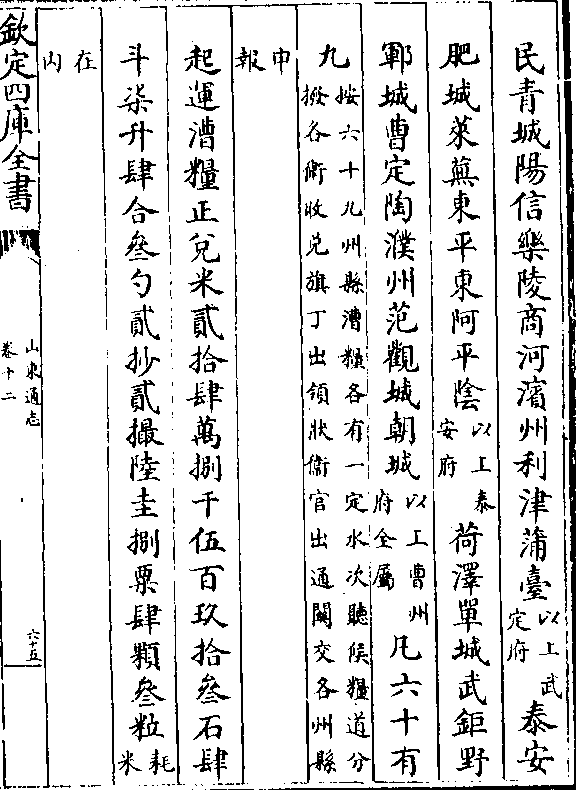 民青城陽信樂陵商河濱州利津蒲臺以上武定府泰安
肥城萊蕪東平東阿平陰以上泰安府荷澤單城武鉅野
鄆城曹定陶濮州范觀城朝城以上曹州府全屬凡六十有
九按六十九州縣漕糧各有一定水次聽候糧道分撥各衛收兑旗丁出領狀衛官出通關交各州縣
申報
起運漕糧正兑米貳拾肆萬捌千伍百玖拾叄石肆
斗柒升肆合叄勺貳抄貳撮陸圭捌粟肆顆叄粒耗米
在内
欽定四庫全書
山東通志
卷十二
六十五